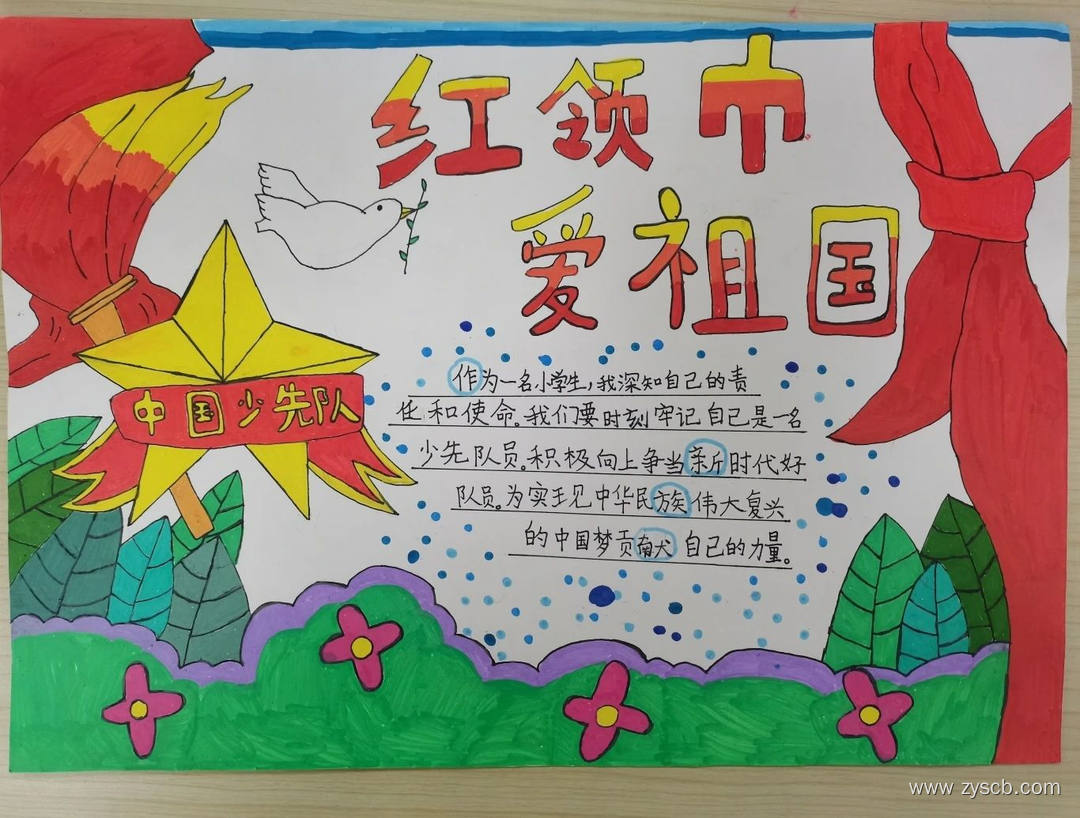 红领巾
爱祖国
中国少先队
作为一名小学生,我深知自己的责
任和使命。我们要时刻牢记自己是一名
少先队员。积极向上争当新时代好
队员。为实现中华民族伟大复兴
的中国梦贡献自己的力量。
www.zyscb.com